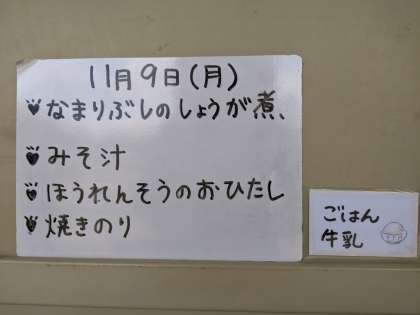 11月9日(月)
なまりぶしのしょうが煮、
みそ汁
ほうれんそうのおひたし
焼きのり
ごはん
牛乳